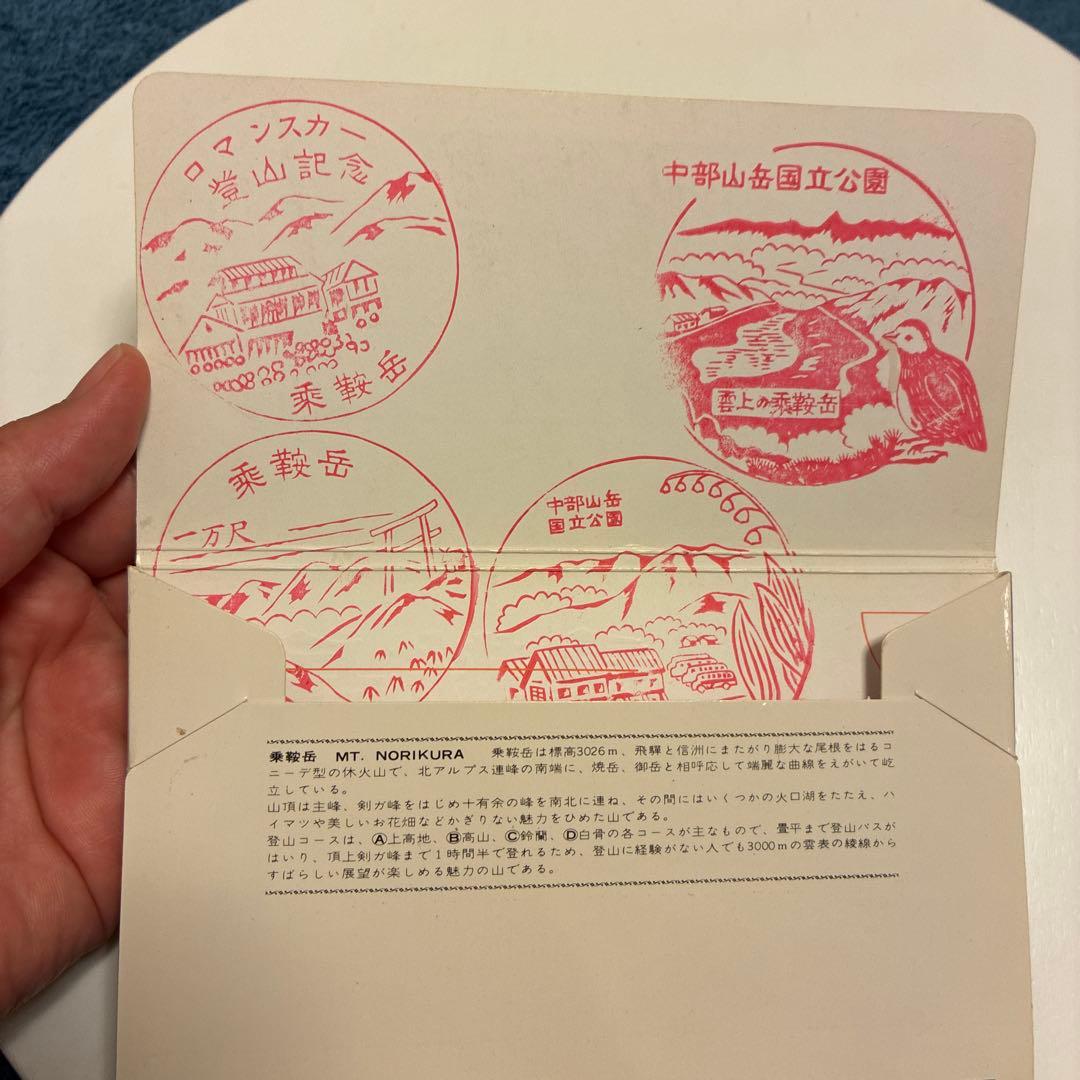 ロマンスカー
登山記念
乗鞍岳
中部山岳国立公園
雲上の乗鞍岳
乗鞍岳
一万尺
中部山岳
国立公園
乗鞍岳 MT. NORIKURA 乗鞍岳は標高3026m、飛騨と信洲にまたがり膨大な尾根をはるコ
ニーデ型の休火山で、北アルプス連峰の南端に、焼岳、御岳と相呼応して端麗な曲線をえがいて屹
立している。
山頂は主峰、剣ガ峰をはじめ十有余の峰を南北に連ね、その間にはいくつかの火口湖をたたえ、ハ
イマツや美しいお花畑などかぎりない魅力をひめた山である。
登山コースは、Ⓐ上高地、Ⓑ高山、Ⓒ鈴蘭、Ⓓ白骨の各コースが主なもので、畳平まで登山バスが
はいり、頂上剣ガ峰まで1時間半で登れるため、登山に経験がない人でも3000mの雲表の綾線から
すばらしい展望が楽しめる魅力の山である。